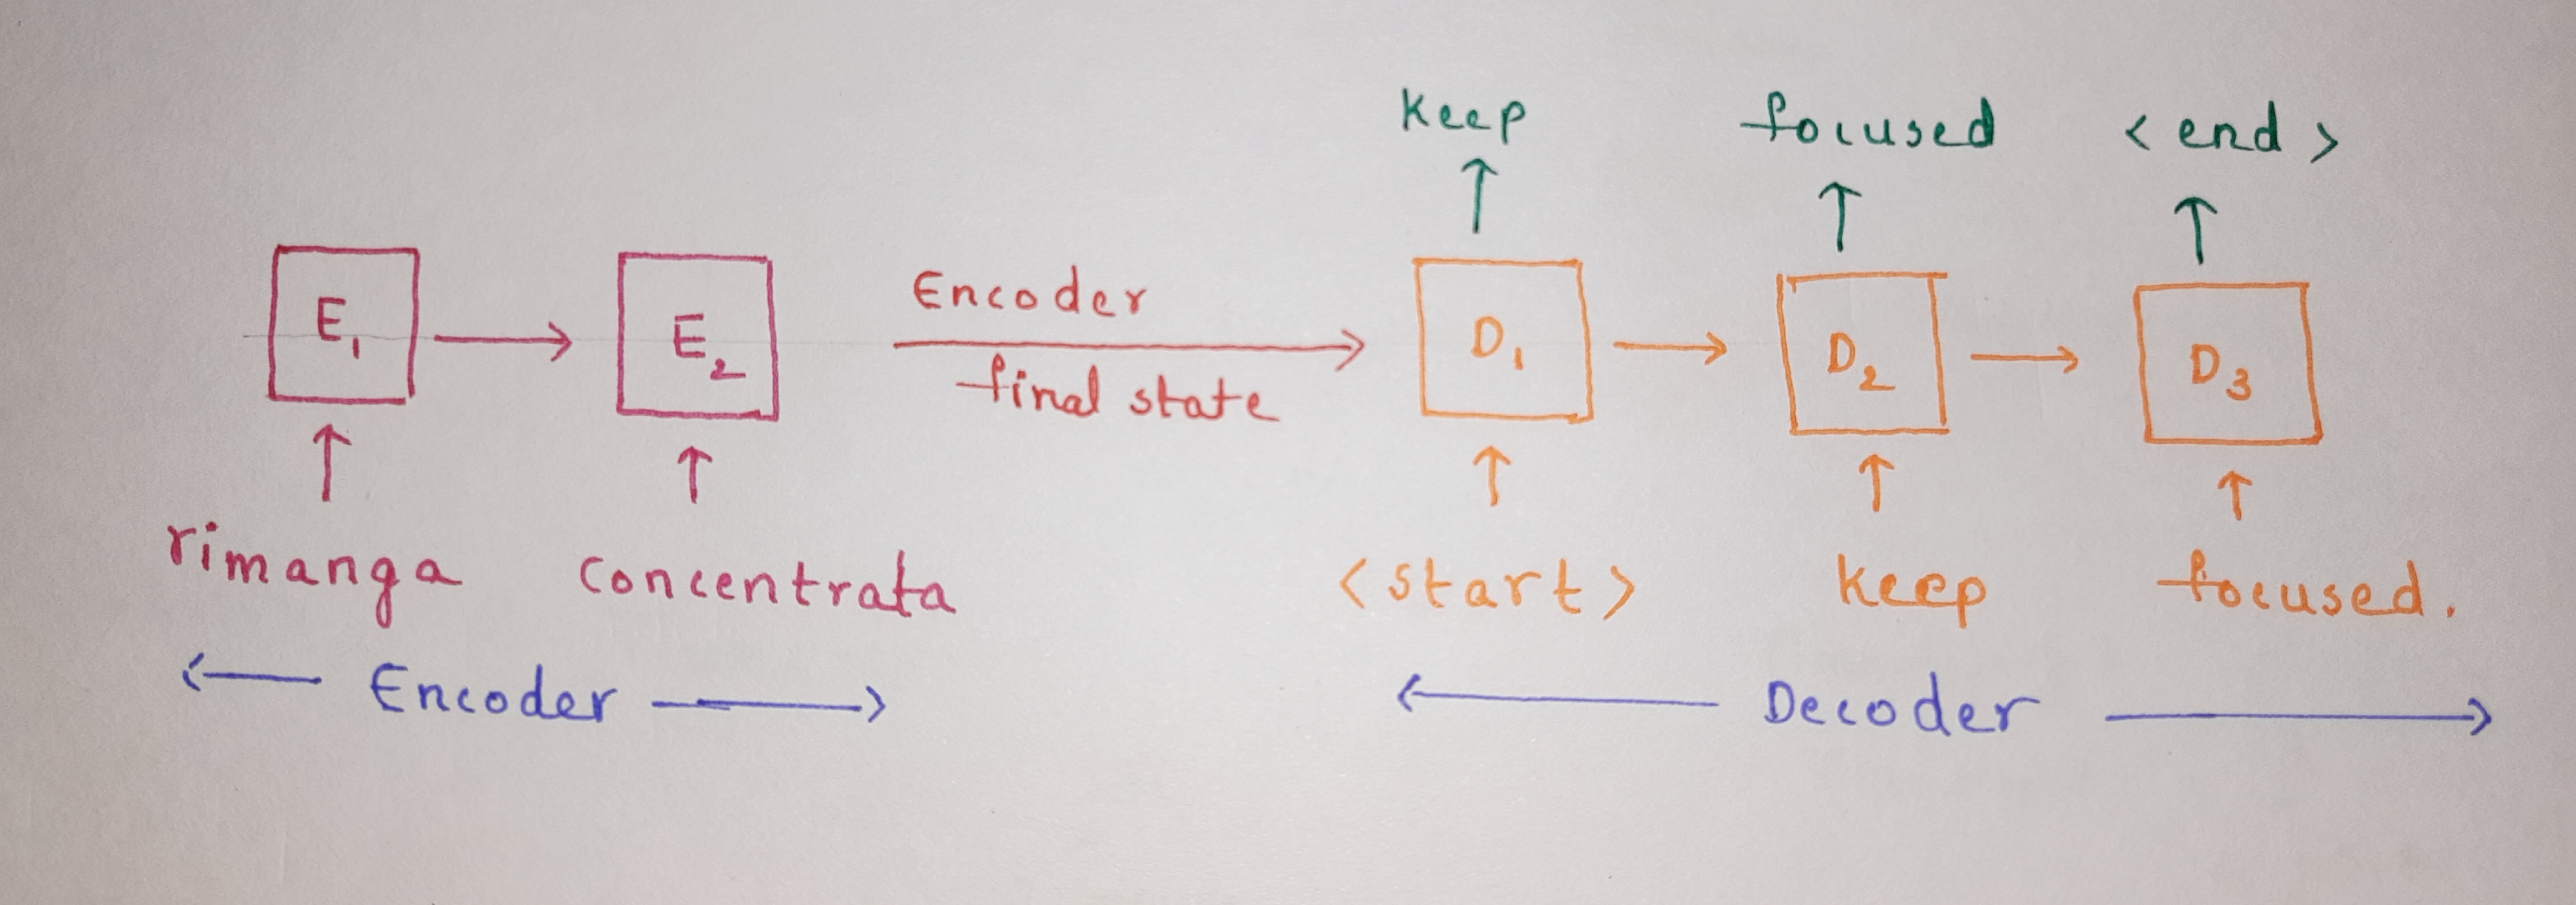 Keep focused <end>
E1 E2 Encoder final state D1 D2 D3
rimanga concentrata <start> keep focused.
Encoder Decoder